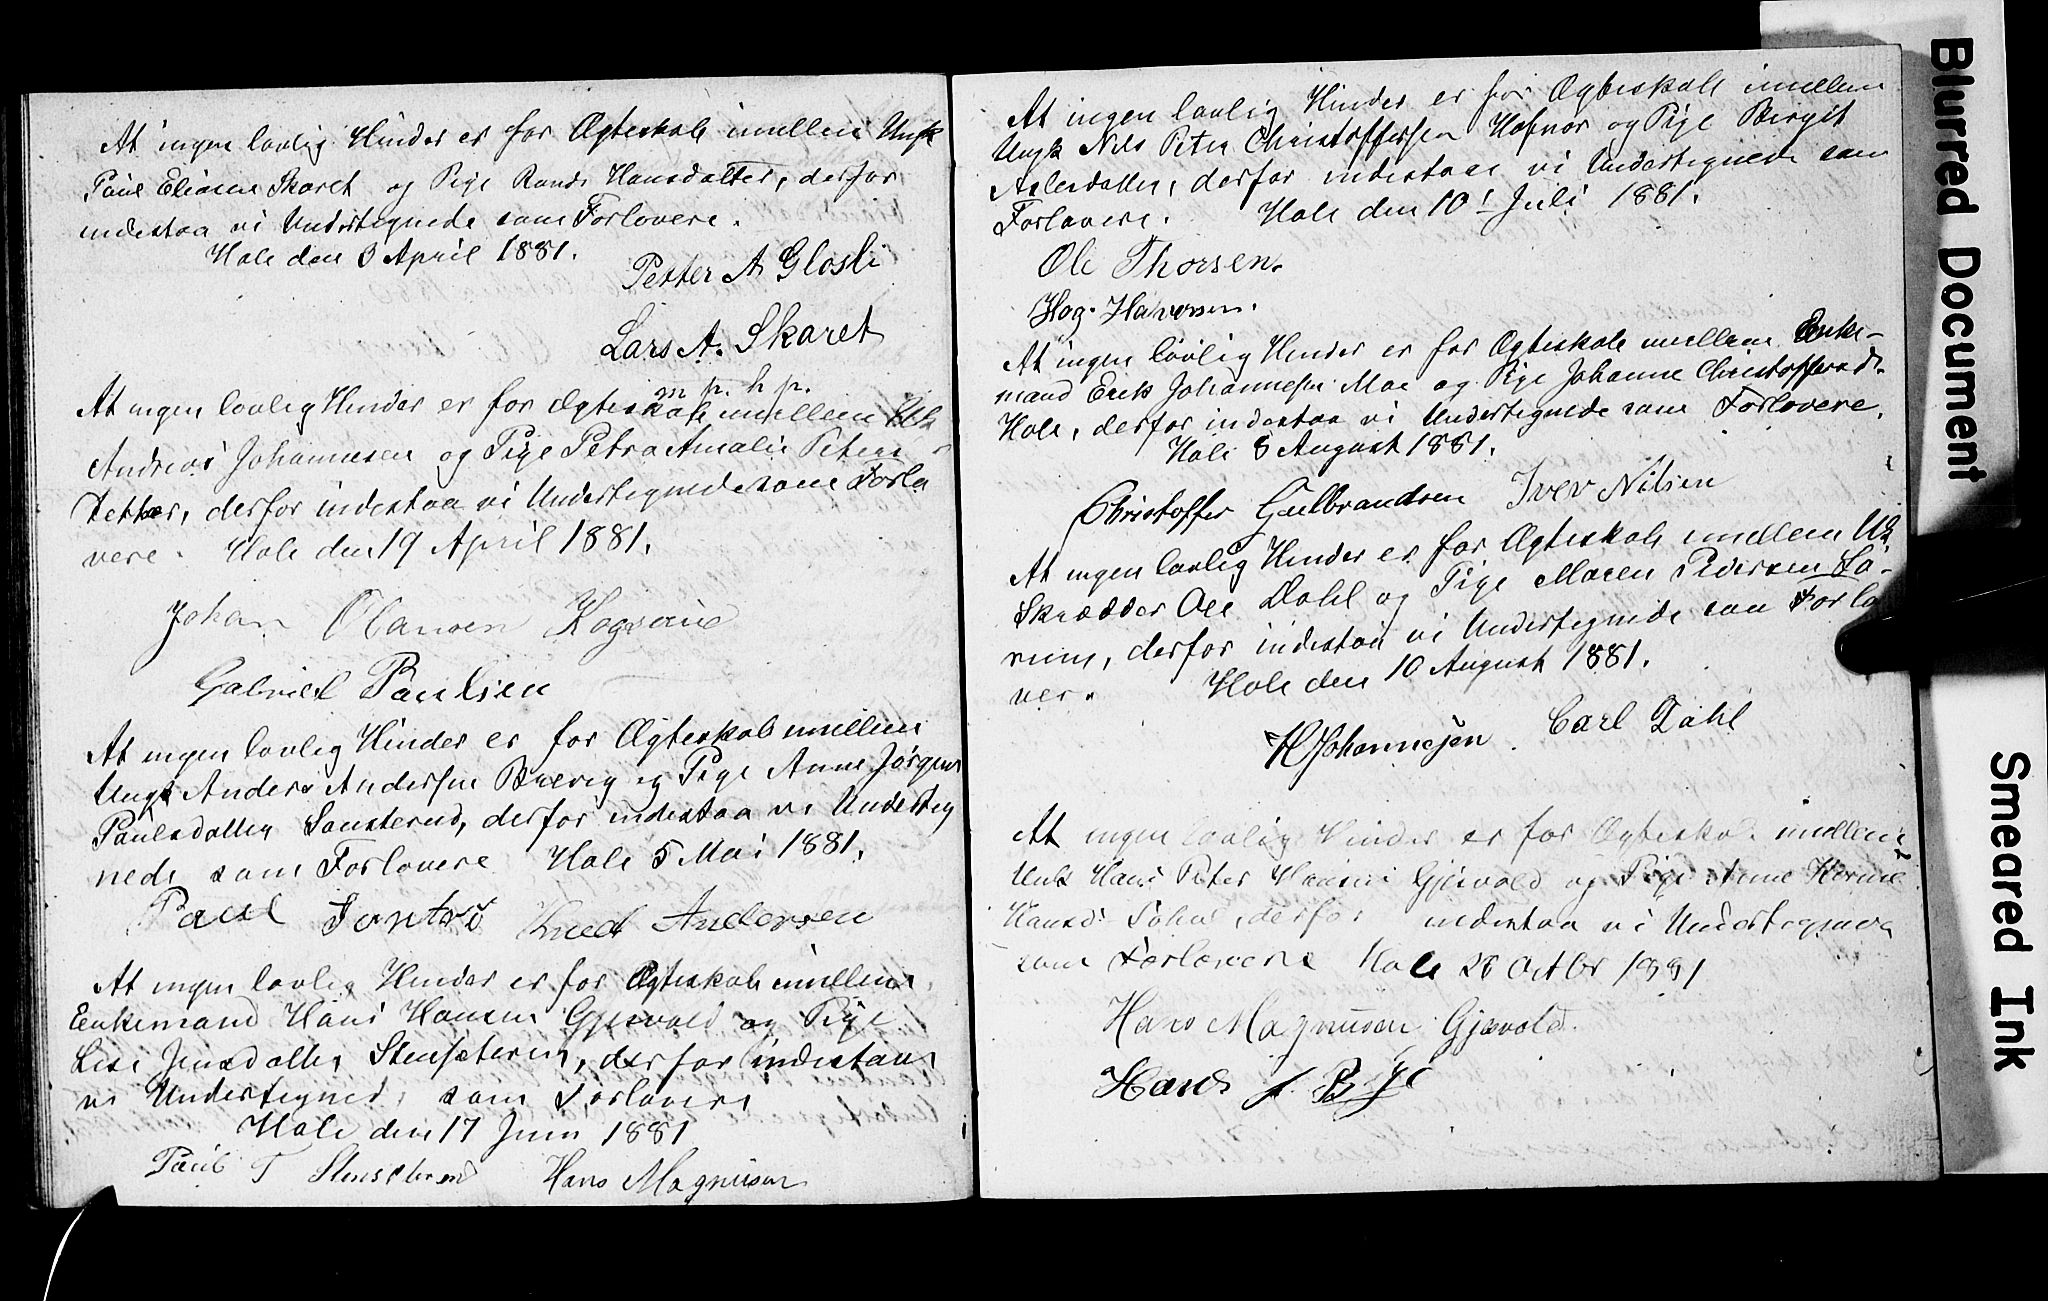 At ingen lovlig Hinder er for Ægteskab imellem Ungk
Paul Eliasen Skaret og Pige Randi Hansdatter, derfor
indestaa vi Undertegnede som Forlovere.
Hole den 3 April 1881.
Petter A Glosli
Lars A. Skaret
m p. h p.
At ingen lovlig Hinder er for Ægteskab imellem
Andreas Johannesen og Pige Petra Amalie Peters
datter, derfor indestaa vi Undertegnede som Forlo
vere. Hole den 19 April 1881.
Johan Olausen
Gabriel Paulsen
At ingen lovlig Hinder er for Ægteskab imellem
Ungk Anders Andersen Brevig og Pige Anne Jørgine
Paulsdatter, derfor indestaa vi Underteg
nede som Forlovere Hole 5 Mai 1881.
Paul Knud Andersen
At ingen lovlig Hinder er for Ægteskab imellem
Enkemand Hans Hansen Gjesvold og Pige
Lise Jensdatter, derfor indestaar
vi Undertegnede som Forlovere
Hole den 17 Juni 1881
Paul T Hans Magnusen
At ingen lovlig Hinder er for Ægteskab imellem
Ungk Nils Peter Christoffersen Hafnor og Pige Birgit
Aslesdatter, derfor indestaar vi Undertegnede som
Forlovere. Hole den 10 Juli 1881.
Ole Thorsen.
Hag. Halvorsen.
At ingen lovlig Hinder er for Ægteskab imellem Enke-
mand Erik Johannesen Moe og Pige Johanne Christoffersdt.
Hole, derfor indestaa vi Undertegnede som Forlovere.
Hole 8 August 1881.
Christoffer Gulbrandsen Iver Nilsen
At ingen lovlig Hinder er for Ægteskab imellem Uk
Skrædder Ole Dahl og Pige Maren Pedersen Lo-
rum, derfor indestaa vi Undertegnede som Forlo
ver. Hole den 10 August 1881.
H Johannesen. Carl Dahl
At ingen lovlig Hinder er for Ægteskab imellem
Unk Hans Peter Hansen Gjesvold og Pige Anne
Hansd. derfor indestaa vi Undertegnede
som Forlovere Hole 28 Octbr 1881
Hans Magnusen Gjesvold.
Hans
Blurred Document
Smeared Ink